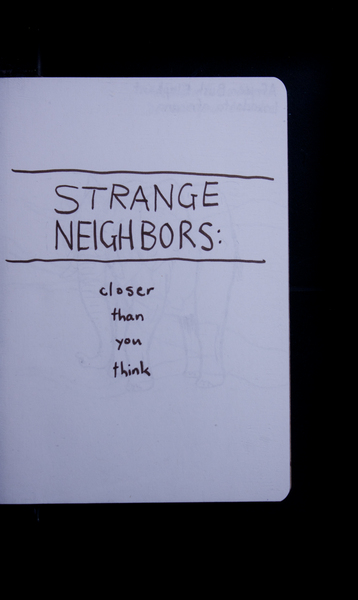 STRANGE
NEIGHBORS:
closer
than
you
think